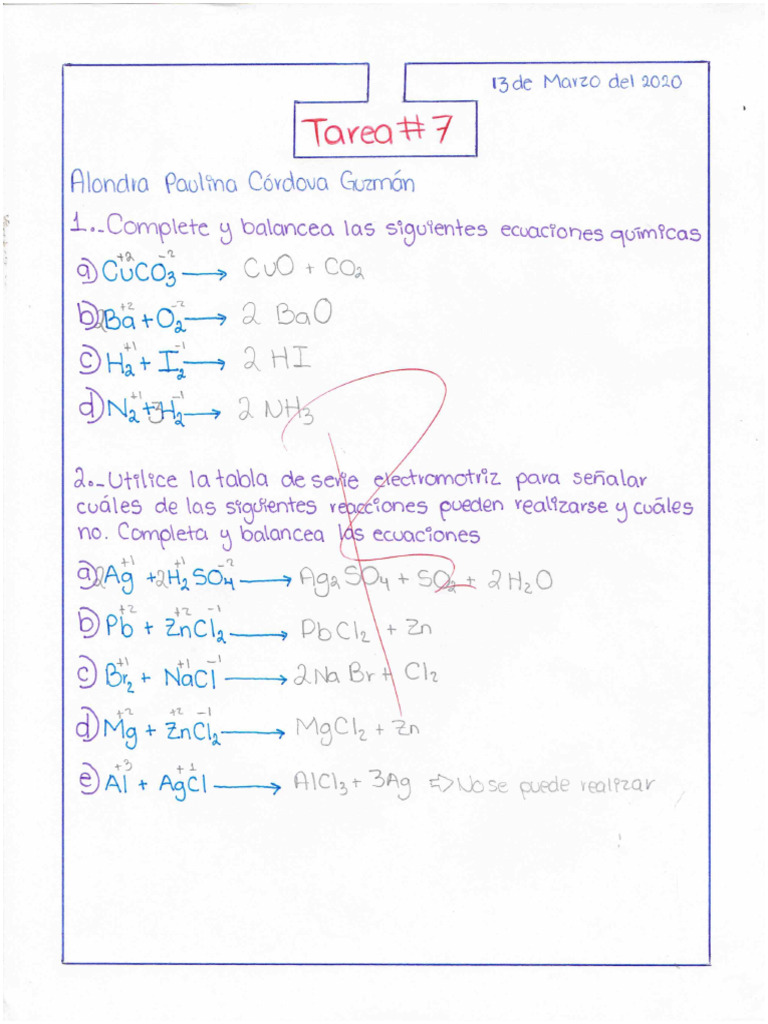 13 de Marzo del 2020
Tarea #7
Alondra Paulina Córdova Guzmán
1.- Complete y balancea las siguientes ecuaciones químicas
a) Cu⁺²CO₃⁻² → CuO + CO₂
b) 2Ba⁺² + O₂⁻² → 2 BaO
c) H₂⁺¹ + I₂⁻¹ → 2 HI
d) N₂⁺¹ + 3H₂⁻¹ → 2 NH₃
2.- Utilice la tabla de serie electromotriz para señalar
cuáles de las siguientes reacciones pueden realizarse y cuáles
no. Completa y balancea las ecuaciones
a) 2Ag⁺¹ + 2H₂⁺¹SO₄⁻² → Ag₂SO₄ + SO₂ + 2H₂O
b) Pb⁺² + Zn⁺²Cl₂⁻¹ → PbCl₂ + Zn
c) Br₂⁺¹ + Na⁺¹Cl⁻¹ → 2NaBr + Cl₂
d) Mg⁺² + Zn⁺²Cl₂⁻¹ → MgCl₂ + Zn
e) Al⁺³ + Ag⁺¹Cl → AlCl₃ + 3Ag ⇨ No se puede realizar